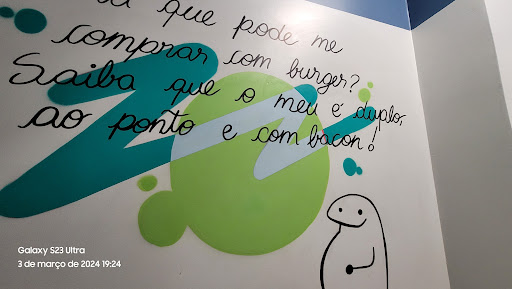 que pode me
comprar com burger?
Saiba que o meu é duplo,
ao ponto e com bacon!
Galaxy S23 Ultra
3 de março de 2024 19:24